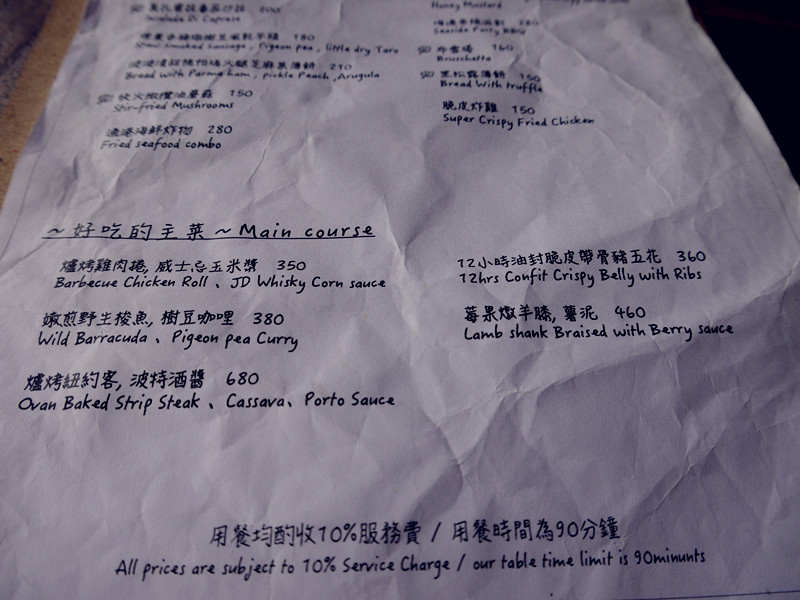 200
Insalada Di Caprese
180
Slow smoked Sausage, Pigeon pea, little dry Taro
210
Bread with Parma ham, pickle Peach, Arugula
快火橄欖油蘑菇 150
Stir-fried Mushrooms
漁港海鮮炸物 280
Fried seafood combo
Honey Mustard
280
Seaside Party BBQ
布雪塔 160
Bruschatta
黑松露薄餅 150
Bread With truffle
脆皮炸雞 150
Super Crispy Fried Chicken
~好吃的主菜~Main course
爐烤雞肉捲, 威士忌玉米醬 350
Barbecue Chicken Roll 、 JD Whisky Corn sauce
嫩煎野生梭魚, 樹豆咖哩 380
Wild Barracuda 、 Pigeon pea Curry
爐烤紐約客, 波特酒醬 680
Ovan Baked Strip Steak 、 Cassava、 Porto Sauce
12小時油封脆皮帶骨豬五花 360
12hrs Confit Crispy Belly with Ribs
莓果燉羊膝, 薯泥 460
Lamb shank Braised with Berry sauce
用餐均酌收10%服務費 / 用餐時間為90分鐘
All prices are subject to 10% Service Charge / our table time limit is 90minunts